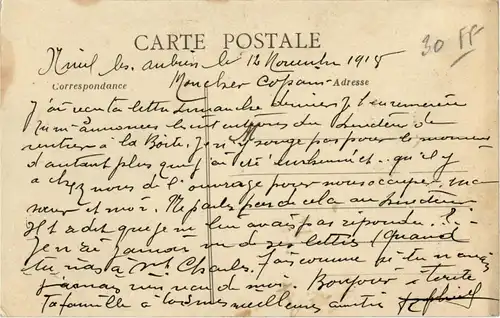 CARTE POSTALE
30 FF
les aubiers le 12 Novembre 1915
Correspondance
Mon cher Copain
Adresse
J'ai reçu ta lettre dimanche dernier je t'en remercie
Tu m'annonces les intentions du directeur de
rentrer à la Boîte. Je n'y songe pas pour le moment
d'autant plus que j'ai été qu'il y
a chez nous de l'ouvrage pour nous occuper ma
sœur et moi. Ne parle pas de cela au directeur
et dit que je ne lui avais pas répondu. Si
je n'ai jamais vu de ses lettres (Quand
tu iras à St Charles. Fais comme si tu n'avais
jamais rien vu de moi. Bonjour à toute
ta famille à toi mes meilleures amitiés